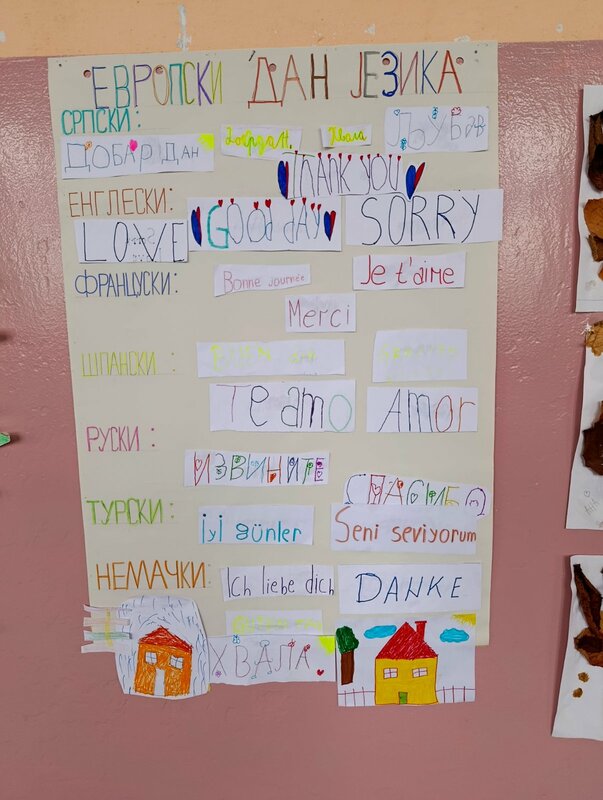 ЕВРОПСКИ ДАН ЈЕЗИКА
СРПСКИ:
ДОБАР ДАН
Добрдан.
Хвала
ЉУБАВ
ЕНГЛЕСКИ:
THANK YOU
LOVE
GOOD DAY
SORRY
ФРАНЦУСКИ:
Bonne journée
Je t'aime
Merci
ШПАНСКИ:
Te amo
Amor
РУСКИ:
ИЗВИНИТЕ
СПАСИБО
ТУРСКИ:
İyi günler
Seni seviyorum
НЕМАЧКИ:
Ich liebe dich
DANKE
ХВАЛА